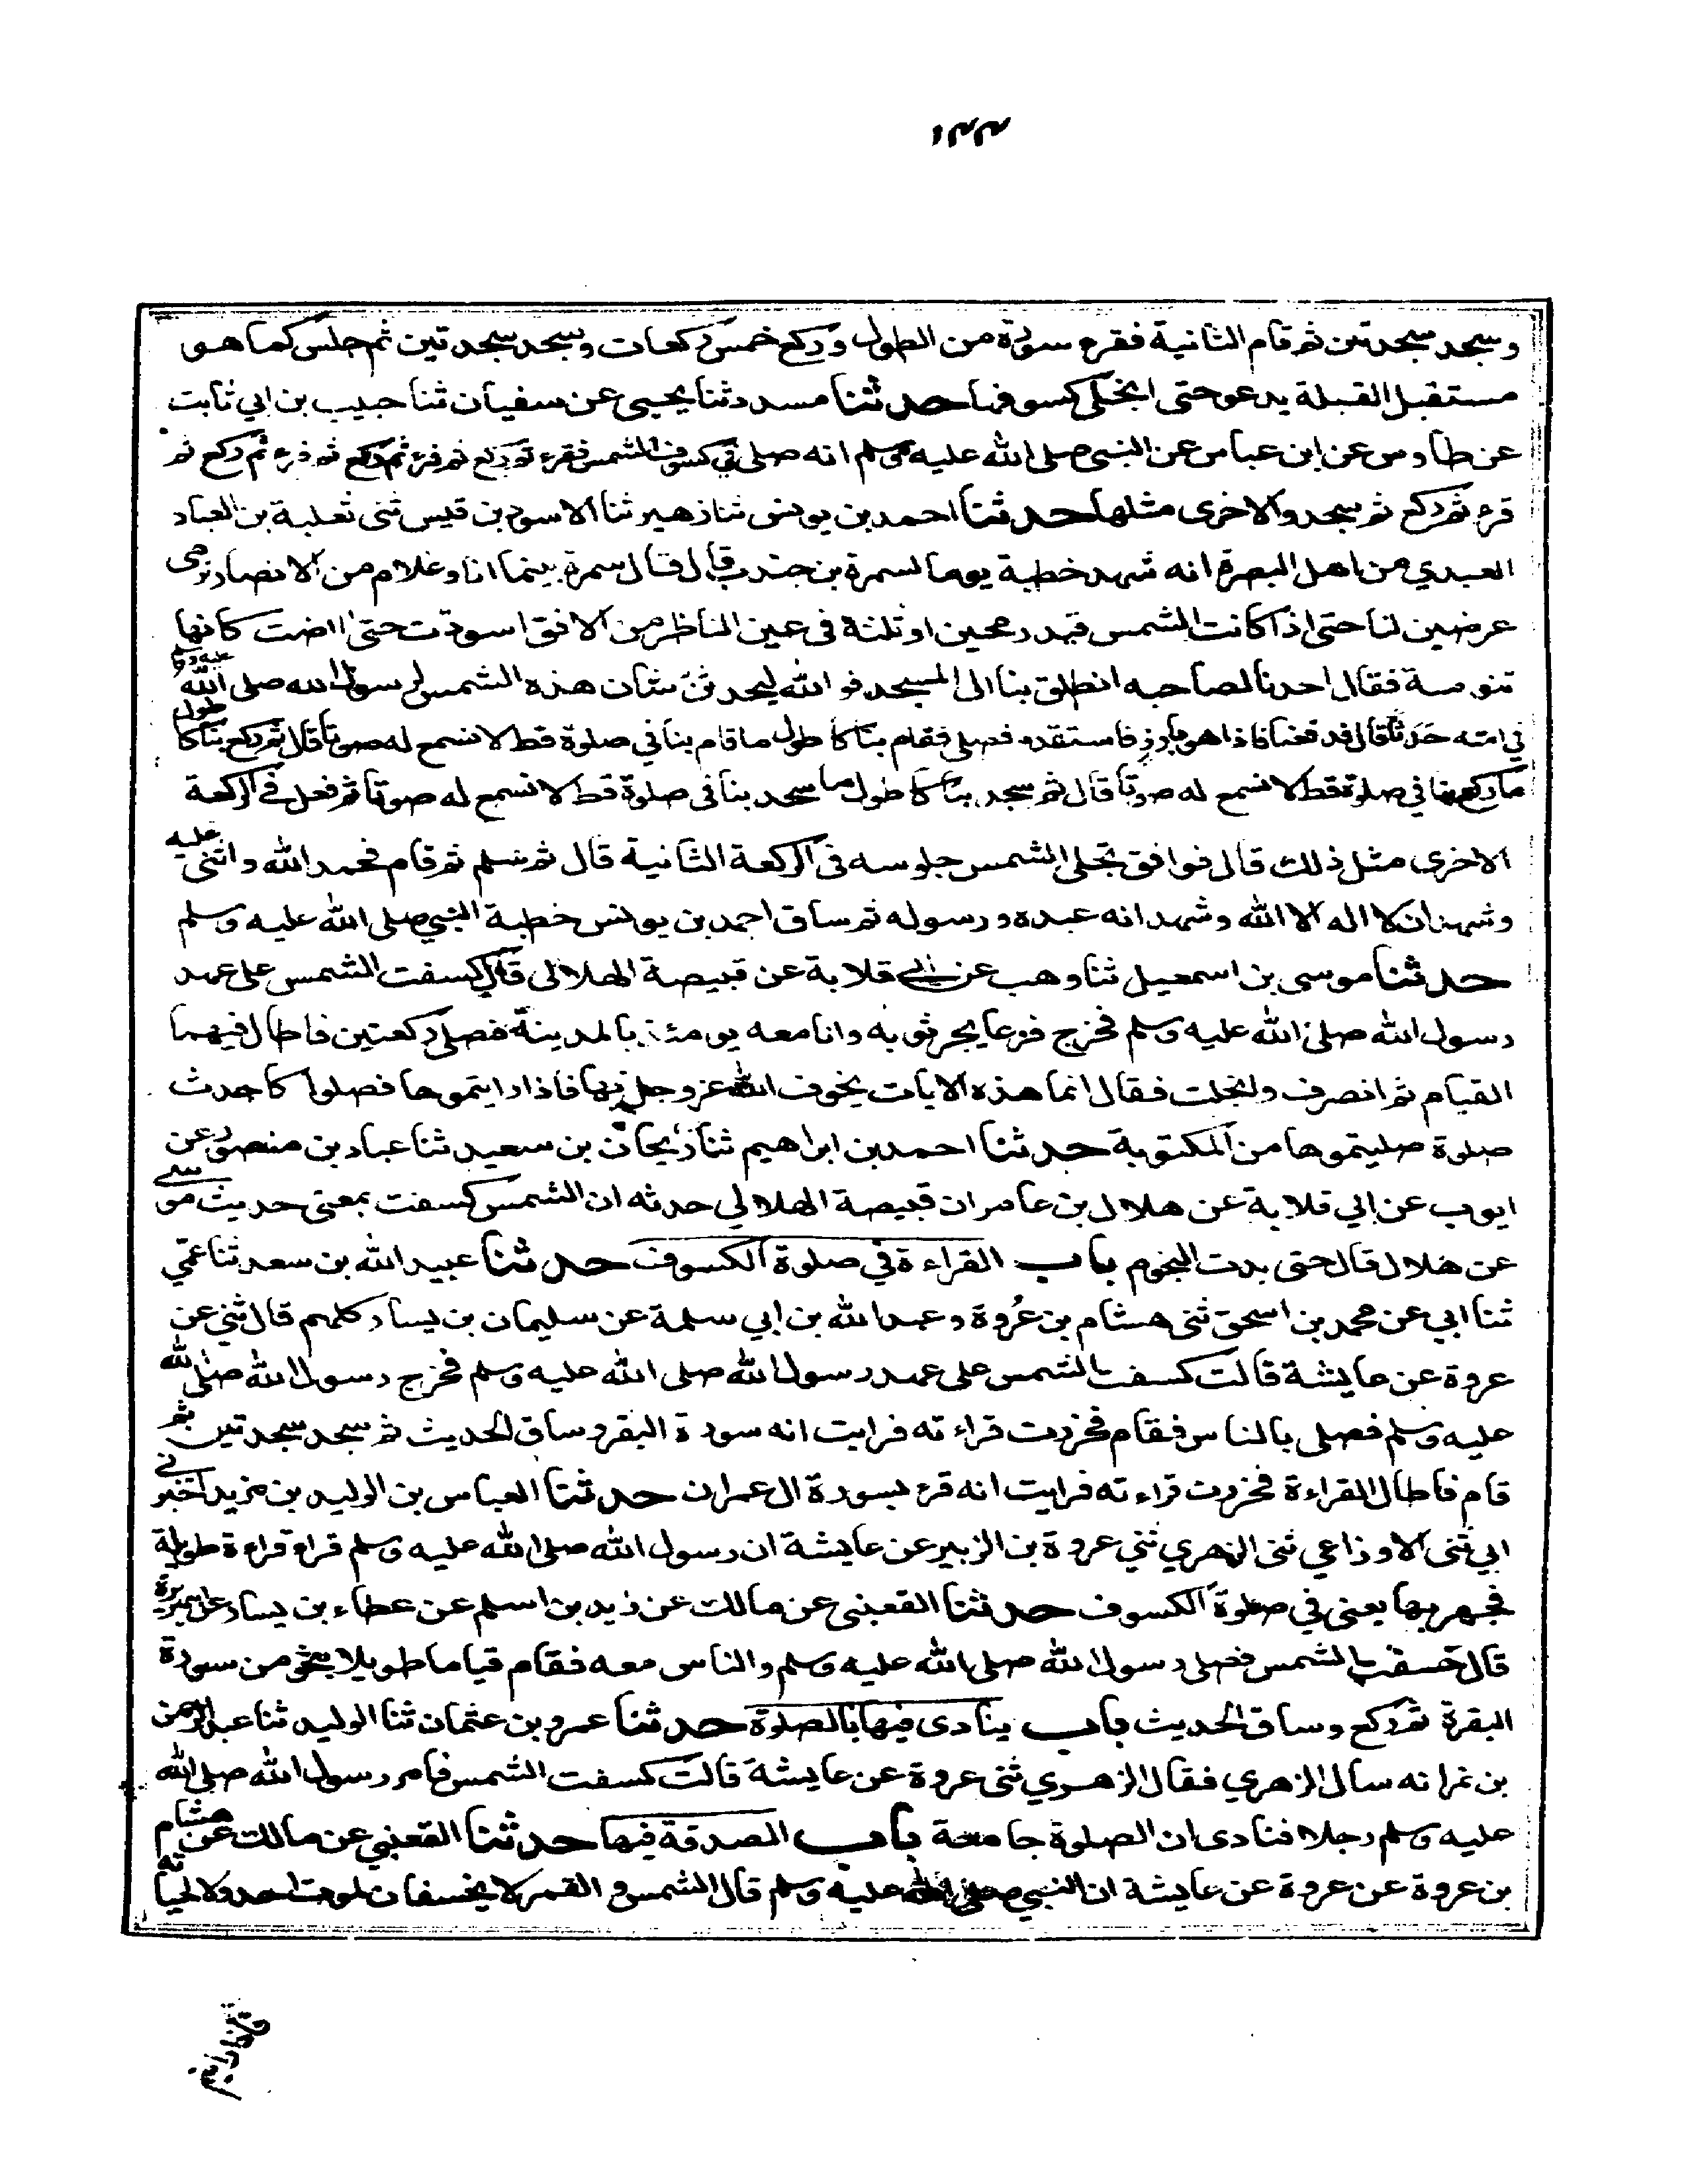 وسجد سجدتين ثم قام الثانية فقرء سورة من الطول وركع خمس ركعات وسجد سجدتين ثم جلس كما هو
مستقبل القبلة يدعو حتى انجلى كسوفها حدثنا مسدد ثنا يحيى عن سفيان ثنا حبيب بن ابي ثابت
عن طاوس عن ابن عباس عن النبي صلى الله عليه وسلم انه صلى في كسوف الشمس فقرء ثم ركع ثم قرء ثم ركع ثم قرء ثم ركع ثم
قرء ثم ركع ثم سجد والاخرى مثلها حدثنا احمد بن يونس ثنا زهير ثنا الاسود بن قيس ثنى ثعلبة بن العباد
العبدي من اهل البصرة انه شهد خطبة يوما لسمرة بن جندب قال قال سمرة بينما انا وغلام من الانصار نرمى
عرضين لنا حتى اذا كانت الشمس قيد رمحين او ثلثة في عين الناظر من الافق اسودت حتى اضت كانها
تنومة فقال احدنا لصاحبه انطلق بنا الى المسجد فوالله ليحدثن شان هذه الشمس لرسول الله صلى الله عليه وسلم
في امته حدثا قال فدفعنا فاذا هو بارز فاستقدم فصلى فقام بنا كاطول ما قام بنا في صلوة قط لا نسمع له صوتا قال ثم ركع بنا كاطول
ما ركع بنا في صلوة قط لا نسمع له صوتا قال ثم سجد بنا كاطول ما سجد بنا في صلوة قط لا نسمع له صوتا ثم فعل في الركعة
الاخرى مثل ذلك قال فوافق تجلى الشمس جلوسه في الركعة الثانية قال ثم سلم ثم قام فحمد الله واثنى عليه
وشهد ان لا اله الا الله وشهد انه عبده ورسوله ثم ساق احمد بن يونس خطبة النبي صلى الله عليه وسلم
حدثنا موسى بن اسمعيل ثنا وهب عن ابي قلابة عن قبيصة الهلالى قال كسفت الشمس على عهد
رسول الله صلى الله عليه وسلم فخرج فزعا يجر ثوبه وانا معه يومئذ بالمدينة فصلى ركعتين فاطال فيهما
القيام ثم انصرف وانجلت فقال انما هذه الايات يخوف الله عز وجل بها فاذا رايتموها فصلوا كاحدث
صلوة صليتموها من المكتوبة حدثنا احمد بن ابراهيم ثنا ريحان بن سعيد ثنا عباد بن منصور عن
ايوب عن ابي قلابة عن هلال بن عامر ان قبيصة الهلالي حدثه ان الشمس كسفت بمعنى حديث موسى
عن هلال قال حتى بدت النجوم باب القراءة في صلوة الكسوف حدثنا عبيد الله بن سعد ثنا عمي
ثنا ابي عن محمد بن اسحق ثنى هشام بن عُروة وعبد الله بن ابي سلمة عن سليمان بن يسار كلهم قال ثني عن
عروة عن عايشة قالت كسفت الشمس على عهد رسول الله صلى الله عليه وسلم فخرج رسول الله صلى الله
عليه وسلم فصلى بالناس فقام فحزرت قراءته فرايت انه سورة البقر وساق الحديث ثم سجد سجدتين ثم
قام فاطال القراءة فحزرت قراءته فرايت انه قرء بسورة ال عمران حدثنا العباس بن الوليد بن مزيد اخبرني
ابي ثنى الاوزاعي ثنى الزهري ثني عروة بن الزبير عن عايشة ان رسول الله صلى الله عليه وسلم قراء قراءة طويلة
فجهر بها يعنى في صلوة الكسوف حدثنا القعنبى عن مالك عن زيد بن اسلم عن عطاء بن يسار عن ابي هريرة
قال خسفت الشمس فصلى رسول الله صلى الله عليه وسلم والناس معه فقام قياما طويلا بنحو من سورة
البقرة ثم ركع وساق الحديث باب ينادى فيها بالصلوة حدثنا عمرو بن عثمان ثنا الوليد ثنا عبد الرحمن
بن نمر انه سال الزهري فقال الزهري ثنى عروة عن عايشة قالت كسفت الشمس فامر رسول الله صلى الله
عليه وسلم رجلا فنادى ان الصلوة جامعة باب الصدقة فيها حدثنا القعنبي عن مالك عن هشام
بن عروة عن عروة عن عايشة ان النبي صلى الله عليه وسلم قال الشمس والقمر لا يخسفان لموت احد ولا لحياته